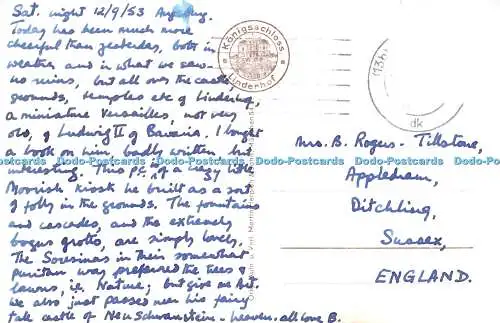 Sat. night 12/9/53 Augsburg
Today has been much more
cheerful than yesterday, both in
weather and in what we saw –
no ruins, but all over the castle,
grounds, temples etc of Linderhof,
a miniature Versailles, not very
old, of Ludwig II of Bavaria. I bought
a book on him, badly written but
interesting. This p.c. is of a crazy little
Moorish Kiosk he built as a sort
of folly in the grounds. The fountains
and cascades, and the extremely
bogus grotto, are simply lovely.
The Soresinas in their somewhat
puritan way preferred the trees &
lawns, i.e. Nature; but give me Art.
We also just passed near his fairy
tale castle of Neuschwanstein – heaven. all love B.
Königsschloss
Linderhof
dk
Mrs. B. Rogers-Tillstone,
Appledram,
Ditchling,
Sussex,
ENGLAND.
Dodo-Postcards Dodo-Postcards Dodo-Postcards Dodo-Postcards